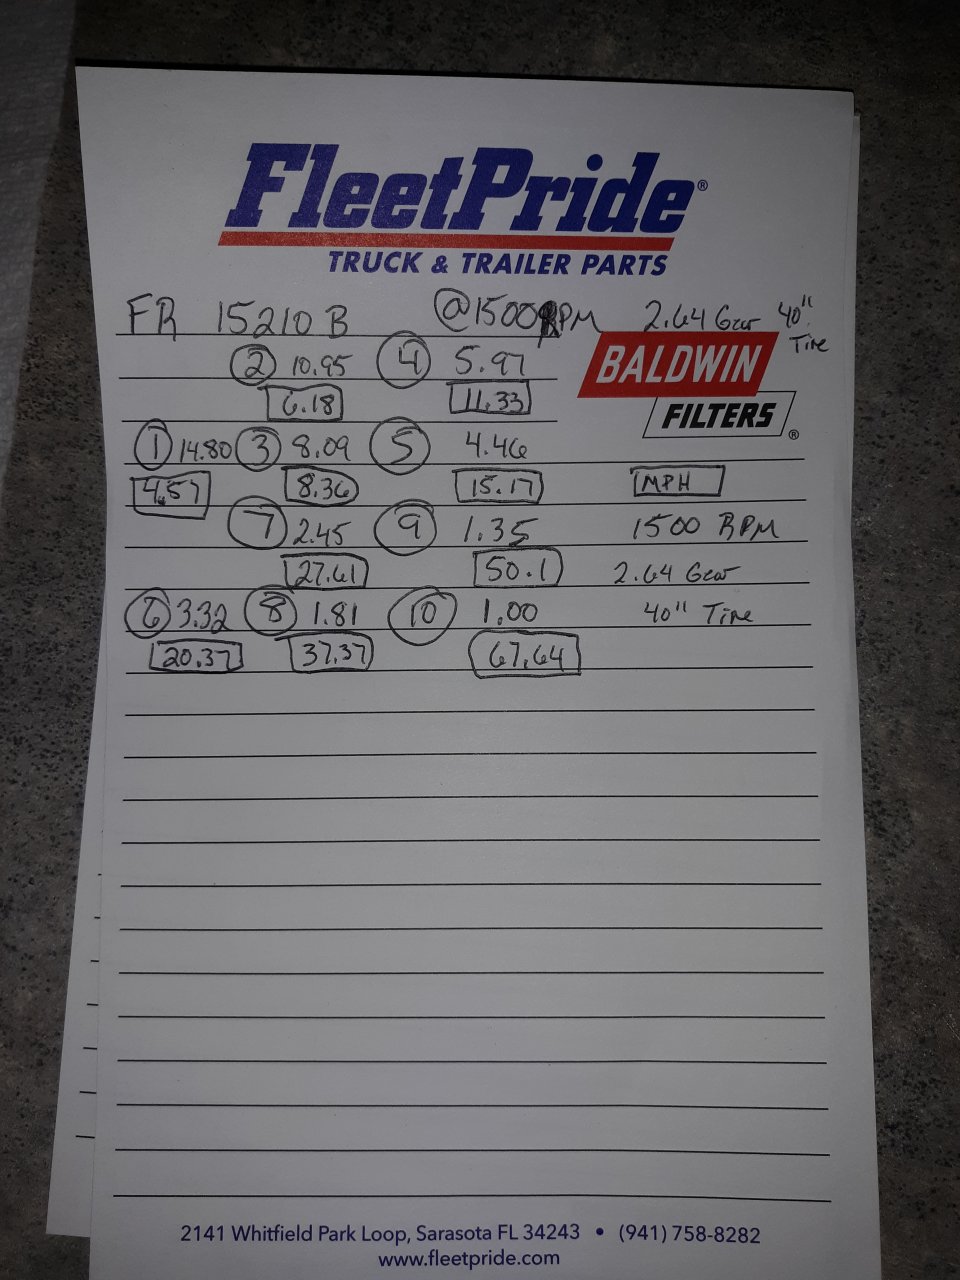 FleetPride®
TRUCK & TRAILER PARTS
FR 15210 B @1500RPM 2.64 Gear 40" Tire
BALDWIN
FILTERS®
2 10.95 4 5.97
6.18 11.33
1 14.80 3 8.09 5 4.46
4.57 8.36 15.17 MPH
7 2.45 9 1.35 1500 RPM
27.61 50.1 2.64 Gear
6 3.32 8 1.81 10 1.00 40" Tire
20.37 37.37 67.64
2141 Whitfield Park Loop, Sarasota FL 34243 • (941) 758-8282
www.fleetpride.com